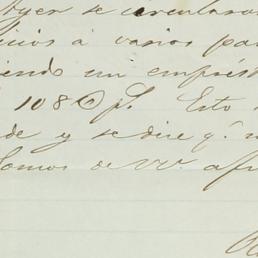 ayer se circularon
cios á varios par
iendo un emprést
108@ ps. Esto
de y se dice q.
Somos de VV. af